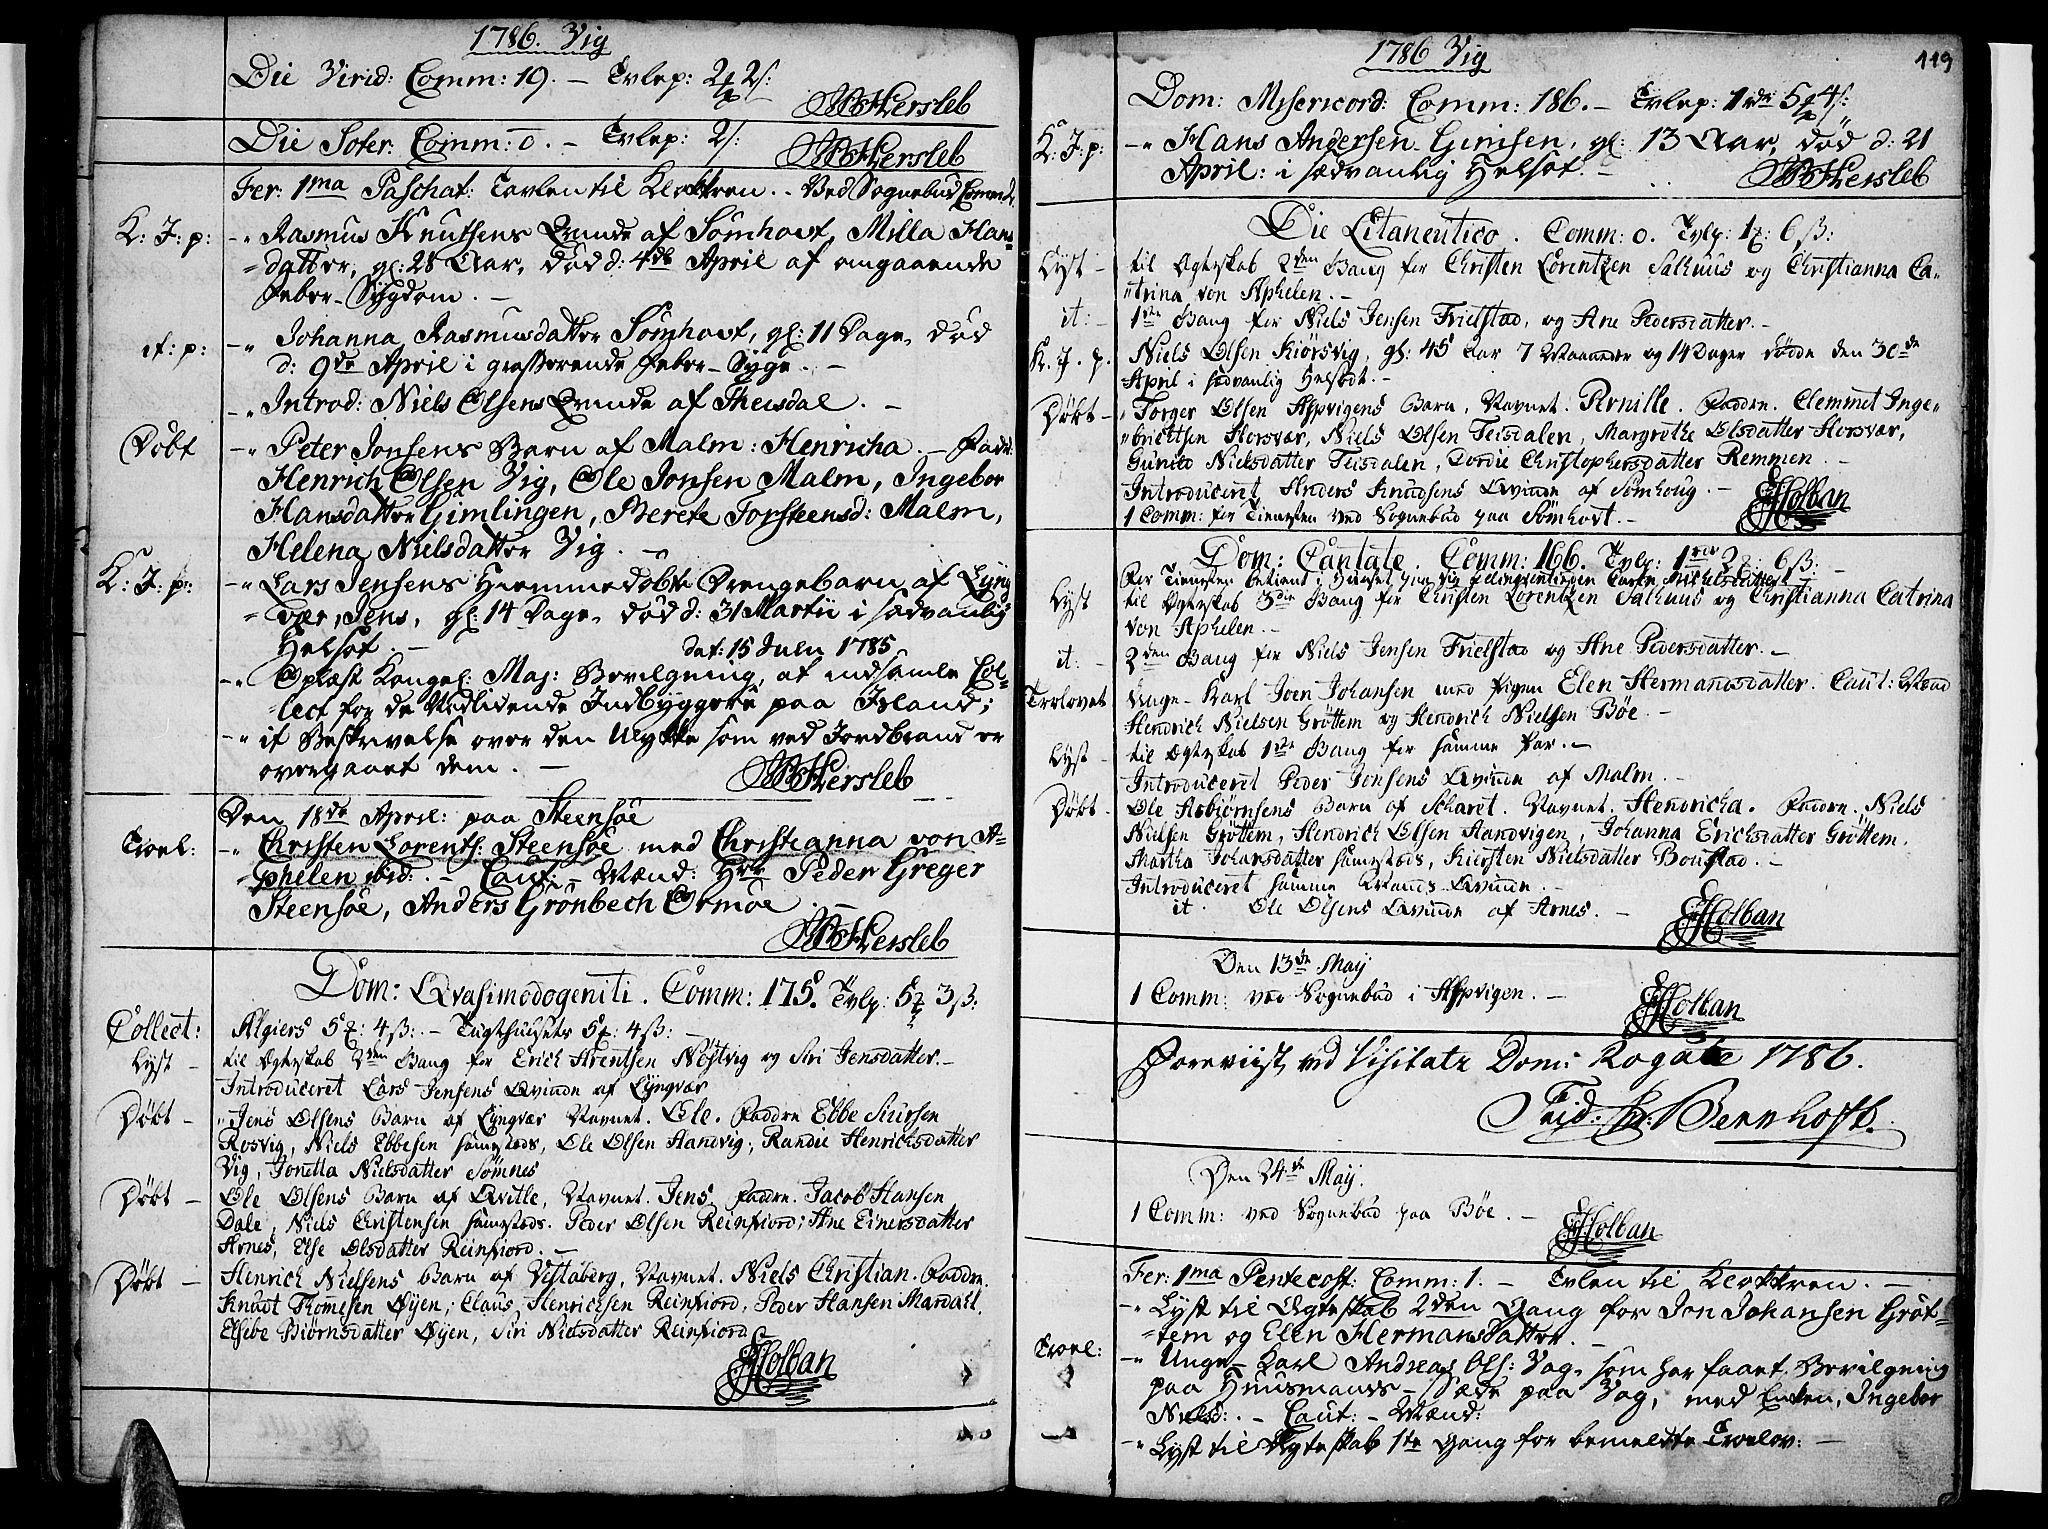 1786. Vig
Die Virid: Comm: 19. — Tvlep: 2 2/:
Hersleb
Die Soter: Comm: 0. — Tvlep: 2/:
Hersleb
Fer: 1ma Paschat: Tavlen til Klokkren. - Ved Sognebud Comm: 2.
K: J: p: -„ Rasmus Knutsens Qvinde af Sömhovt, Milla Hans=
=datter, gl: 28 Aar, död d: 4de April af omgaaende
Feber-Sygdom. —
it: p: -„ Johanna Rasmusdatter Sömhovt, gl: 11 Dage, död
d: 9de April i grasserende Feber-Syge. —
-„ Introd: Niels Olsens Qvinde af Theisdal. —
Döbt -„ Peter Jonsens Barn af Malm: Henricha. — Fadd:
Henrich Olsen Vig, Ole Jonsen Malm, Ingebor
Hansdatter Gimlingen, Berete Torsteensd: Malm,
Helena Nielsdatter Vig. —
K: J: p: -„ Lars Jensens Hiemmedöbte Drengebarn af Lyng
=vær, Jens, gl: 14 Dage, död d: 31 Martii i sædvanlig
Helsot. —
dat: 15 Julii 1785
-„ Oplæst Kongel: Maj: Bevilgning, at indsamle Col=
=lect for de Nödlidende Indbyggere paa Island;
-„ it Beskrivelse over den Ulykke som ved Jordbrand er
overgaaet dem. —
Hersleb
Den 18de April: paa Steensöe
Troel: -„ Christen Lorents: Steensöe med Christianna von A=
=phelen ibid: — Caut: - Mænd: Hrr Peder Greger
Steensöe, Anders Grönbech Ormöe. —
Hersleb
Dom: Qvasimodogeniti. Comm: 175. Tvlp: 5 3ß:
Collect: Algiers 5: 4ß: — Tugthusets 5: 4ß: —
Lyst - til Ægteskab 2den Gang for Erich Arentsen Nöstvig og Siri Jensdatter. —
Introduceret Lars Jensens Qvinde af Lyngvær
Döbt - „Jens Olsens Barn af Lyngvær Navnet. Ole. Faddre Ebbe Siursen
Rosvig, Niels Ebbesen samesteds, Ole Olsen Aandvig, Randie Henrichsdatter
Vig, Jonetta Nielsdatter Sömnes
Döbt - Ole Olsens Barn af Qvitle, Navnet. Jens. Faddre. Jacob Hansen
Dale, Niels Christensen samesteds. Peder Olsen Reinfiord; Ane Einersdatter
Arnes, Else Olsdatter Reinfiord. —
Döbt - Henrich Nielsens Barn af Vistaberg, Navnet. Niels Christian. Faddre.
Knudt Thomesen Öyen, Claus Henrichsen Reinfiord, Peder Hansen Mardahl.
Elsebe Biörnsdatter Öyen, Siri Nielsdatter Reinfiord
Holban
1786 Vig
119
Dom: Misericord: Comm: 186. — Tvlep: 1 rdr 5 4/:
K: J: p: -„ Hans Andersen Gimsen, gl: 13 Aar, död d: 21
April: i sædvanlig Helsot. —
Hersleb
Die Litaneutico. Comm: 0. Tvlp: 1: 6ß:
Lyst - til Ægteskab 2den Gang for Christen Lorentzen Salhuus og Christianna Ca=
„trina von Aphelen. —
it: - 1ste Gang for Niels Jensen Trælstad, og Ane Pedersdatter. —
K. J. p. Niels Olsen Kiörsvig, gl: 45 Aar 7 Maaneder og 14 Dager döde den 30de
April i sædvanlig Helsodt. —
Döbt - „Torger Olsen Aspvigens Barn, Navnet. Pernille. Faddre. Clemmet Inge=
„brictsen Horsvær, Niels Olsen Teisdalen, Margrethe Olsdatter Horsvær,
Gunild Nielsdatter Teisdalen, Dordie Christophersdatter Remmen. —
Introduceret Anders Knudsens Qvinde af Sömhoug. —
1 Comm: for Tienesten ved Sognebud paa Sömhovt. —
Holban
Dom: Cantate. Comm: 166. Tvlp: 1 rdr 3: 6ß: —
til Ægteskab 3die Gang for Christen Lorentzen Salhuus og Christianna Catrina
Lyst von Aphelen. —
it: - 2den Gang for Niels Jensen Trælstad og Ane Pedersdatter. —
Trolovet Unge Karl Joen Johansen med Pigen Elen Hermansdatter. Caut: Mænd
Hendrich Nielsen Gröttem og Hendrich Nielsen Böe. —
Lyst - til Ægteskab 1ste Gang for samme Par. —
Introduceret Peder Jonsens Qvinde af Malm. —
Döbt - Ole Asbiörnsens Barn af Scharet. Navnet. Hendricha. Faddre. Niels
Nielsen Gröttem, Hendrich Olsen Aandvigen, Johanna Erichsdatter Gröttem.
Martha Johansdatter samesteds, Kiersten Nielsdatter Bonstad. —
Introduceret samme Mands Qvinde. —
it. Ole Olsens Qvinde af Arnes. —
Holban
Den 13de May
1 Comm: ved Sognebud i Aspvigen. —
Holban
Foreviist ved Visitatz Dom: Rogate 1786.
Frid: Chr: Bernhoft.
Den 24de May.
1 Comm: ved Sognebud paa Böe. —
Holban
Fer: 1ma Pentecost: Comm: 1. — Tvlen til Klokkren. —
-„ Lyst til Ægteskab 2den Gang for Jon Johansen Gröt=
=tem og Elen Hermansdatter. —
Troel: -„ Unge-Karl Andreas Ols: Vag, som har faaet Bevilgning
paa Huusmands-Sæde paa Vag, med Enken, Ingebor
Nielsd: — Caut: - Mænd:
-„ Lyst til Ægteskab 1ste Gang for bemeldte Troelov: —